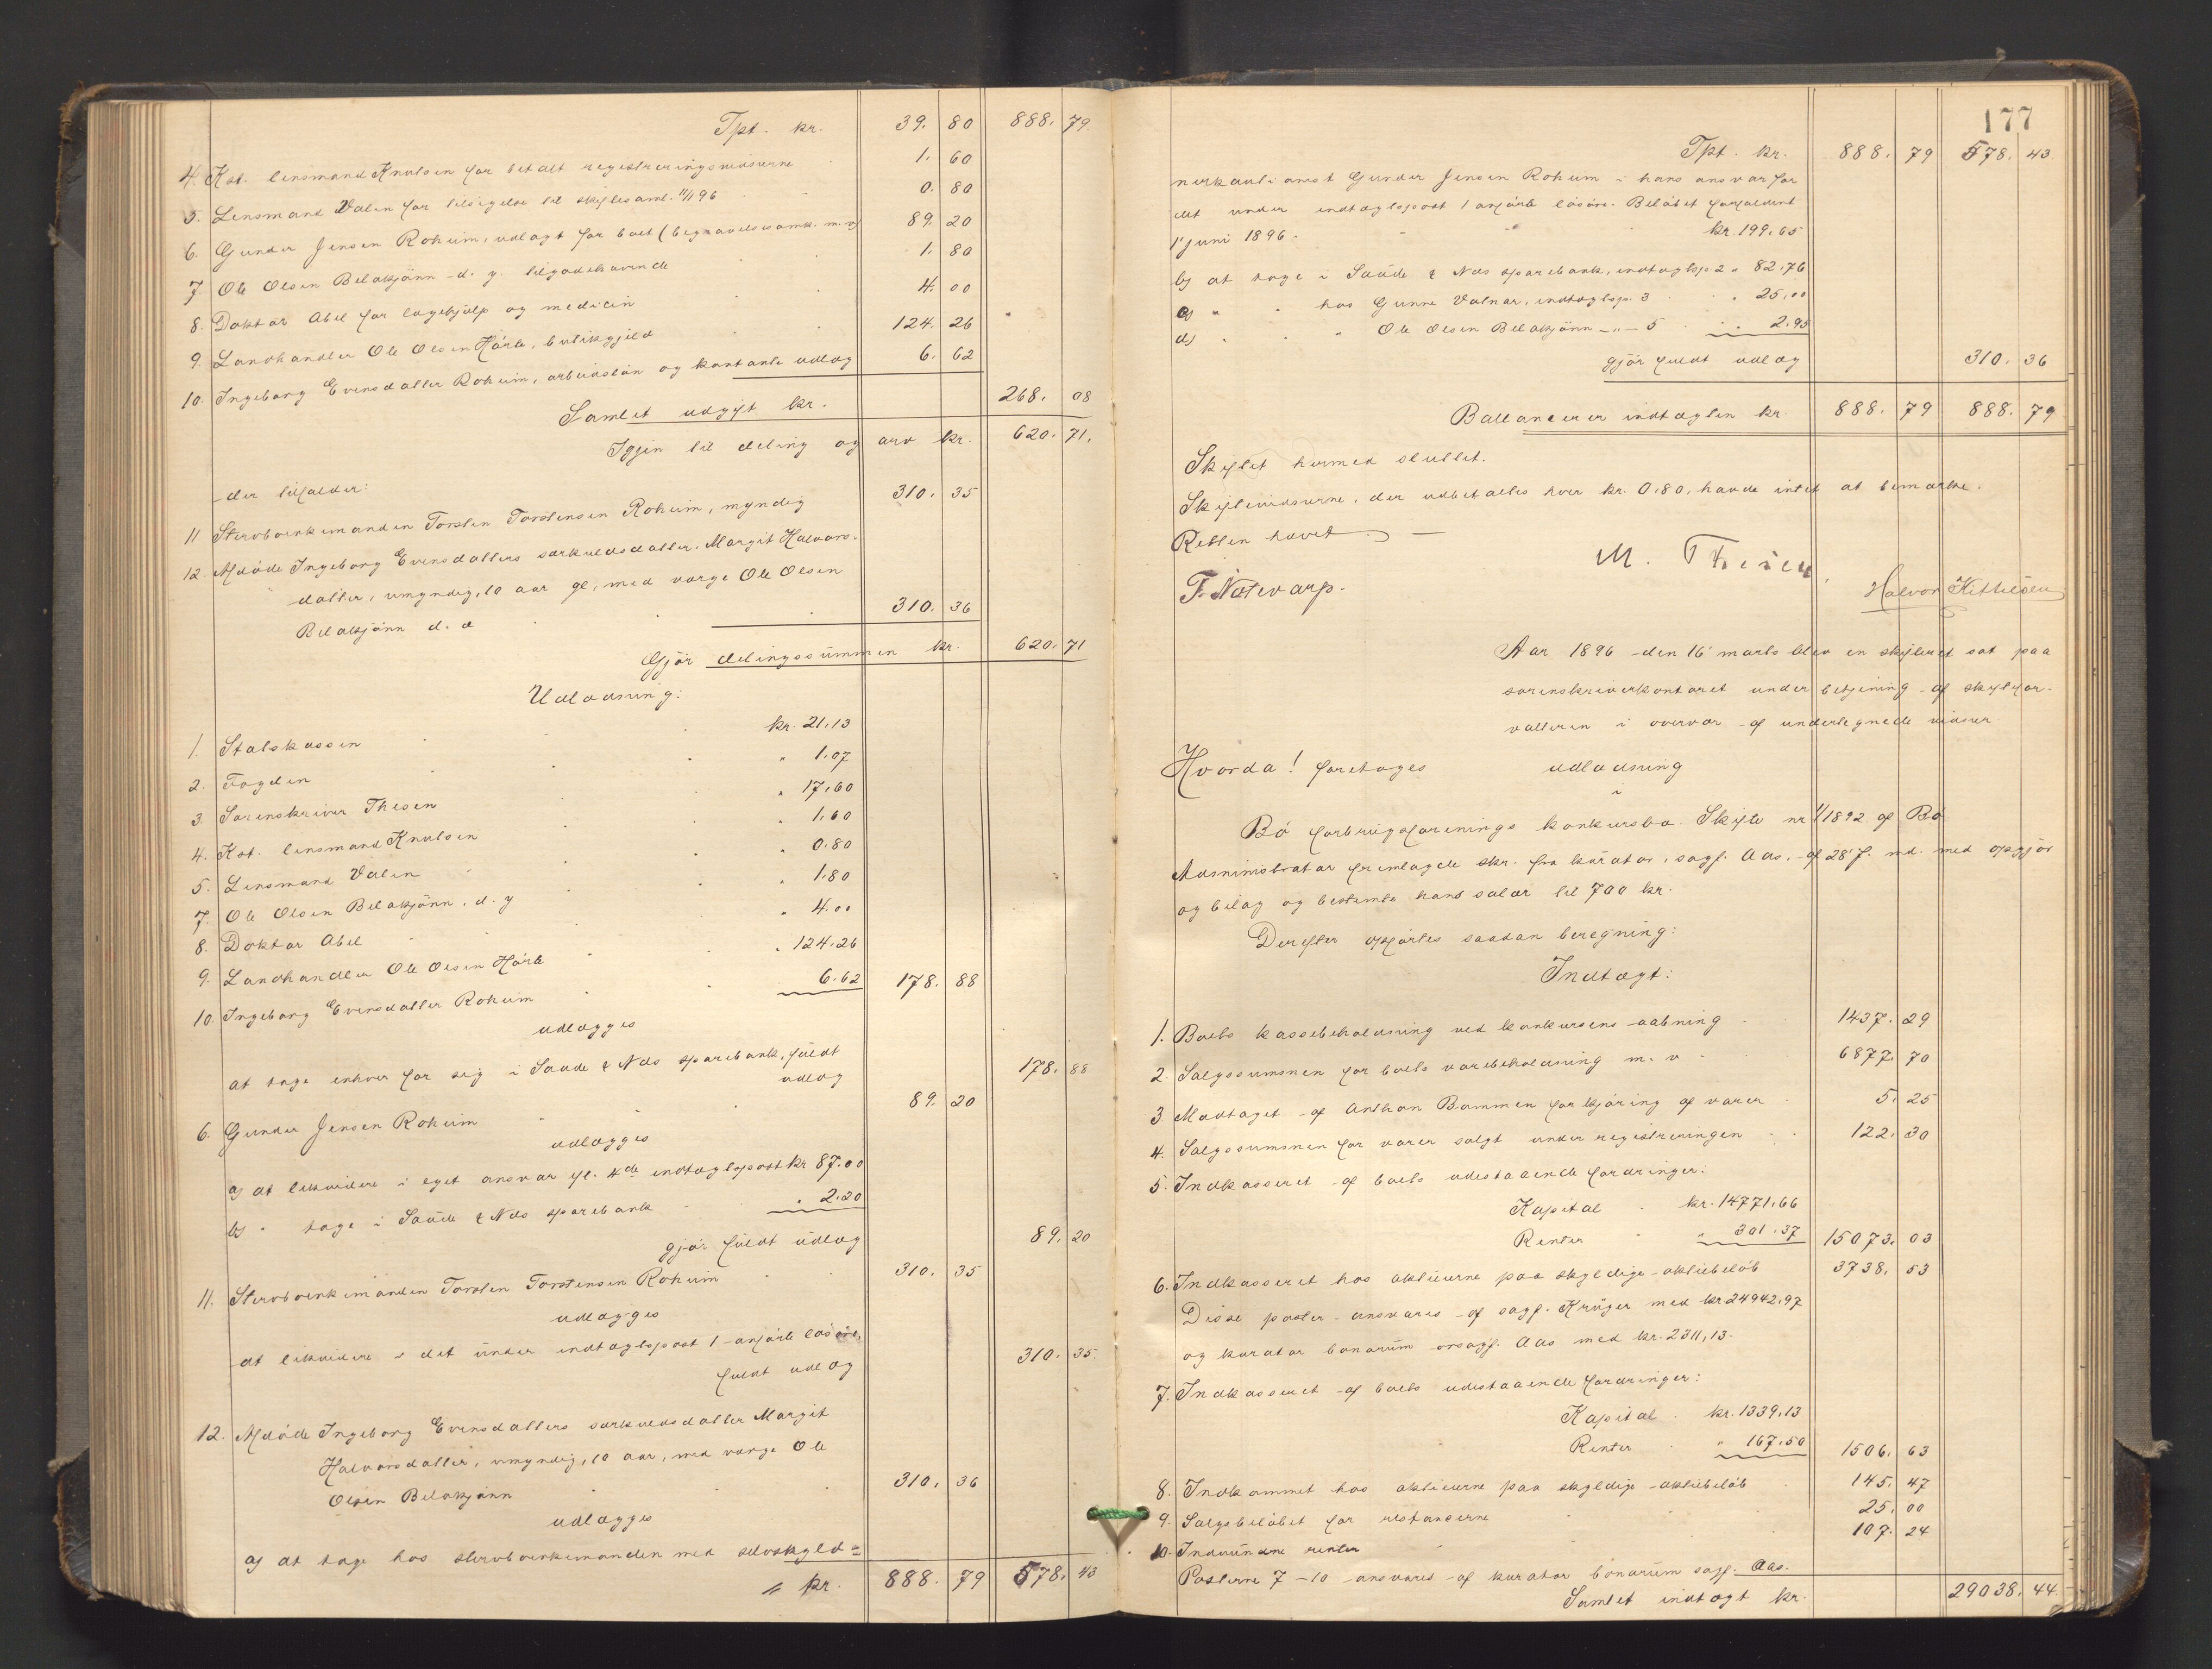 Tpt. kr. 39. 80 888. 79
4. Kst. lensmand Knutsen for betalt registreringsvidnerne 1. 60
5. Lensmand Valen for tilsigelse til skiftesaml. 11/1 96 0. 80
6. Gunder Jensen Roheim, udlagt for boet (begravelsesomk. m. v) 89. 20
7. Ole Olsen Bilakjönn d. y. tilgodehavende 1. 80
8. Doktor Abel for lægehjælp og medicin 4. 00
9. Landhandler Ole Olsen Hörte, butikgjeld 124. 26
10. Ingeborg Evensdatter Roheim, arbeidslön og kontante udlæg 6. 62
Samlet udgift kr. 268. 08
Igjen til deling og arv kr. 620. 71.
der tilfalder:
11 Stervboenkemanden Torsten Torstensen Roheim, myndig 310. 35
12. Afdöde Ingeborg Evensdatters særkuldsdatter, Margit Halvors-
datter, umyndig, 10 aar gl, med værge Ole Olsen
Bilakjönn d. æ 310. 36
Gjör delingssummen kr. 620. 71
Udlodning:
1. Statskassen kr. 21.13
2. Fogden " 1.07
3. Sorenskriver Thesen " 17.60
4. Kst. lensmand Knutsen " 1.60
5. Lensmand Valen " 0.80
7. Ole Olsen Bilakjönn, d. y " 1.80
8. Doktor Abel " 4.00
9. Landhandler Ole Olsen Hörte " 124.26
10. Ingeborg Evensdatter Roheim 6.62 178. 88
udlægges
at tage enhver for sig i Saude & Næs sparebank, fuldt
udlæg 178. 88
6. Gunder Jensen Roheim 89. 20
udlægges
a) at likvidere i eget ansvar gl. 4de indtægtspost kr 87.00
b) " tage i Saude & Næs sparebank " 2.20
gjör fuldt udlæg 89. 20
11. Stervboenkemanden Torsten Torstensen Roheim 310. 35
udlægges
at likvidere i det under indtægtspost 1 anförte lösöre,
fuldt udlæg 310. 35.
12. Afdöde Ingeborg Evensdatters særkuldsdatter Margit
Halvorsdatter, umyndig, 10 aar, med værge Ole
Olsen Bilakjönn 310. 36
udlægges
a) at tage hos stervboenkemanden med selvskyld=
" kr. 888. 79 578. 43
177
Tpt. kr. 888. 79 578. 43
nerkautionist Gunder Jensen Roheim i hans ansvar for
det under indtægtspost 1 anförte lösöre. Belöbet forfaldent
1' juni 1896. kr. 199.65
b) at tage i Saude & Næs sparebank, indtægtsp 2 " 82,76
c) " " hos Gunne Valnar, indtægtsp. 3 " 25,00
d) " " " Ole Olsen Bilakjönn -"- 5 " 2.95
gjör fuldt udlæg 310. 36
Ballancerer indtægten kr. 888. 79 888. 79
Skiftet hermed sluttet.
Skiftevidnerne, der udbetaltes hver kr. 0.80, havde intet at bemærke.
Retten hævet.
M. Thesen.
F. Notevarp. Halvor Kittilsen
Aar 1896 den 16' marts blev en skifteret sat paa
sorenskriverkontoret under betjening af skiftefor-
valteren i overvær af undertegnede vidner
Hvorda! foretoges udlodning
i
Bö forbrugsforenings konkursbo. Skifte nr 1/1892 af Bö
Administrator fremlagde skr. fra kurator, sagf. Aas, af 28' f. md. med opgjör
og bilag og bestemte hans salær til 700 kr.
Derefter opfortes saadan beregning:
Indtægt:
1. Boets kassebeholdning ved konkursens aabning 1437. 29
2. Salgssummen for boets varebeholdning m. v 6877. 70
3 Modtaget af Anthon Bommen for kjöring af varer 5. 25
4. Salgssummen for varer solgt under registreringen 122. 30
5. Indkasseret af boets udestaaende fordringer:
Kapital kr. 14771.66
Renter " 301.37 15073. 03
6. Indkasseret hos aktieierne paa skyldige aktiebelöb 3738. 53
Disse poster ansvares af sagf. Krüger med kr 24942,97
og kurator bonorum orsagf. Aas med kr. 2311,13.
7. Indkasseret af boets udestaaende fordringer:
Kapital kr. 1339.13
Renter " 167.50 1506. 63
8. Indkommet hos aktieierne paa skyldige aktiebelöb 145. 47
9. Salgsbelöbet for restancerne 25. 00
10. Indvundne renter 107. 24
Posterne 7-10 ansvares af kurator bonorum sagf. Aas.
Samlet indtægt kr. 29038. 44.